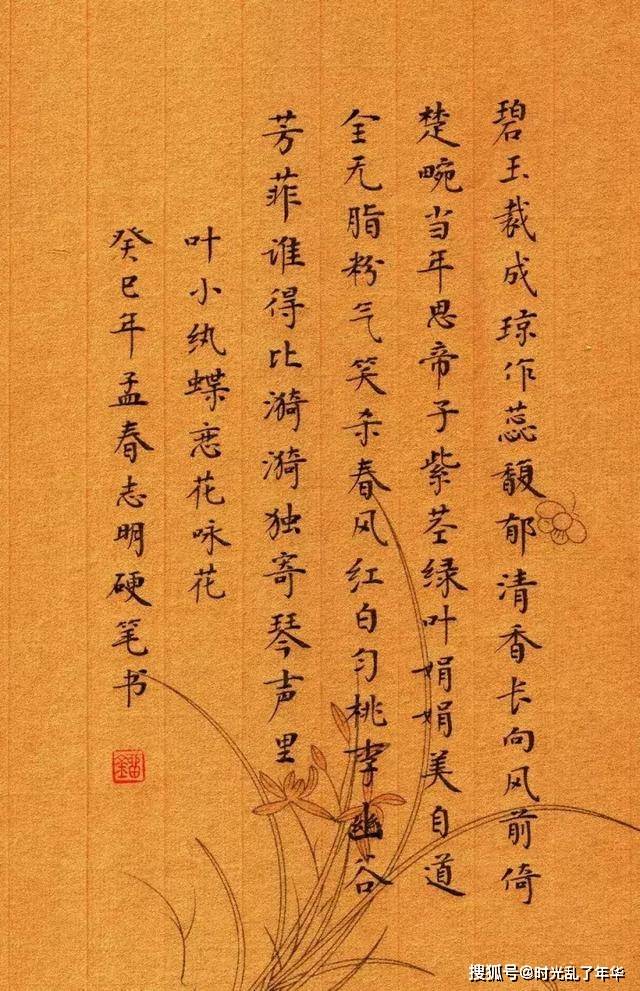 碧玉裁成琼作蕊馥郁清香卡向风前倚
楚畹当年思帝子紫茎绿叶娟娟美自道
全无脂粉气笑杀春风红白匀桃李幽谷
芳菲谁得比漪漪独寄琴声里
叶小纨蝶恋花咏花
癸巳年孟春志明硬笔书
搜狐号@时光乱了年华